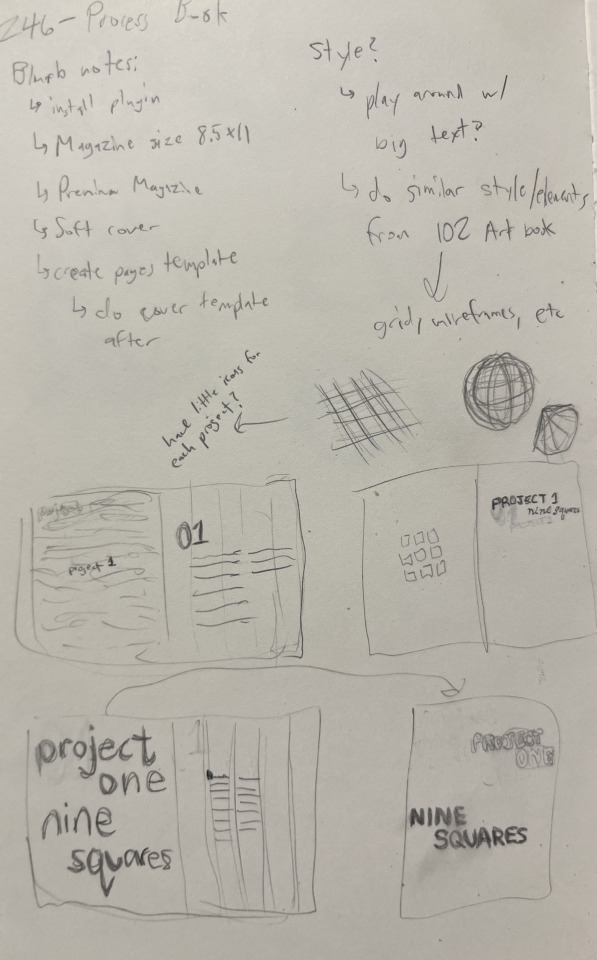 246 - Process Book
Blurb notes:
↳ install plugin
↳ Magazine size 8.5x11
↳ Premium Magizine
↳ Soft cover
↳ create pages template
↳ do cover template
after
Style?
↳ play around w/
big text?
↳ do similar style/elements
from 102 Art book
grid, wireframes, etc
have little icons for
each project?
project 1
01
PROJECT 1
nine squares
project
one
nine
squares
1
PROJECT
ONE
NINE
SQUARES